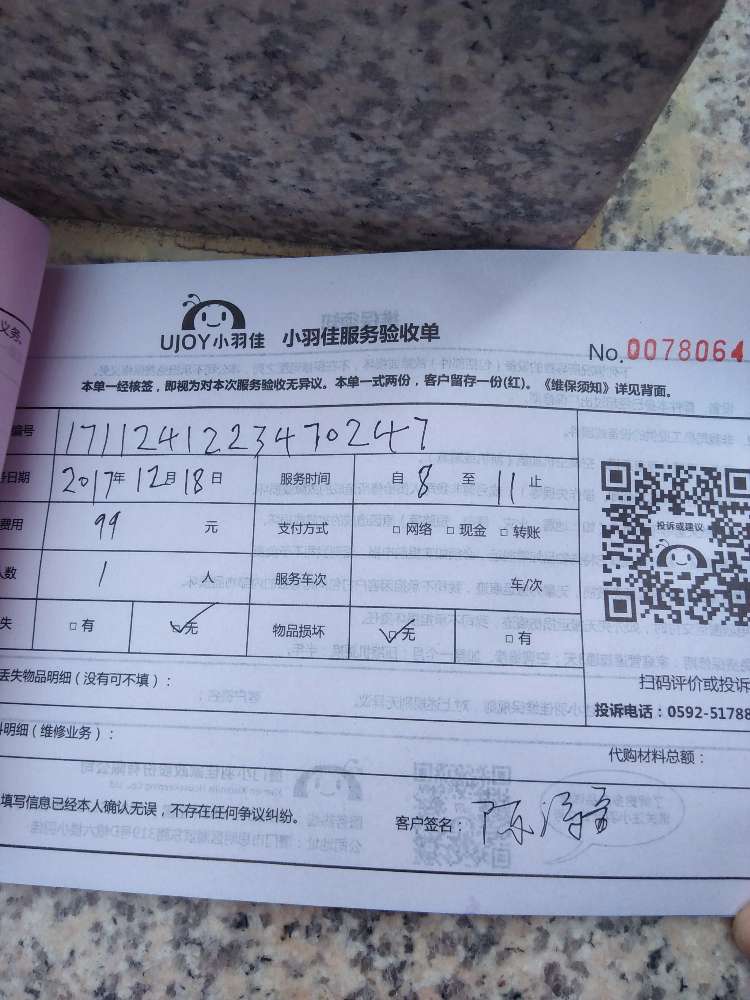 义务。
UJOY小羽佳 小羽佳服务验收单
No.0078064
本单一经核签，即视为对本次服务验收无异议。本单一式两份，客户留存一份(红)。《维保须知》详见背面。
编号 1711241223470247
日期 2017年 12月 18日 服务时间 自 8 至 11 止
费用 99 元 支付方式 □ 网络 □ 现金 □ 转账
人数 1 人 服务车次 车/次
投诉或建议
失 □ 有 ☑无 物品损坏 ☑无 □ 有
丢失物品明细（没有可不填）：
扫码评价或投诉
投诉电话：0592-51788
料明细（维修业务）：
代购材料总额：
填写信息已经本人确认无误，不存在任何争议纠纷。
客户签名：陈